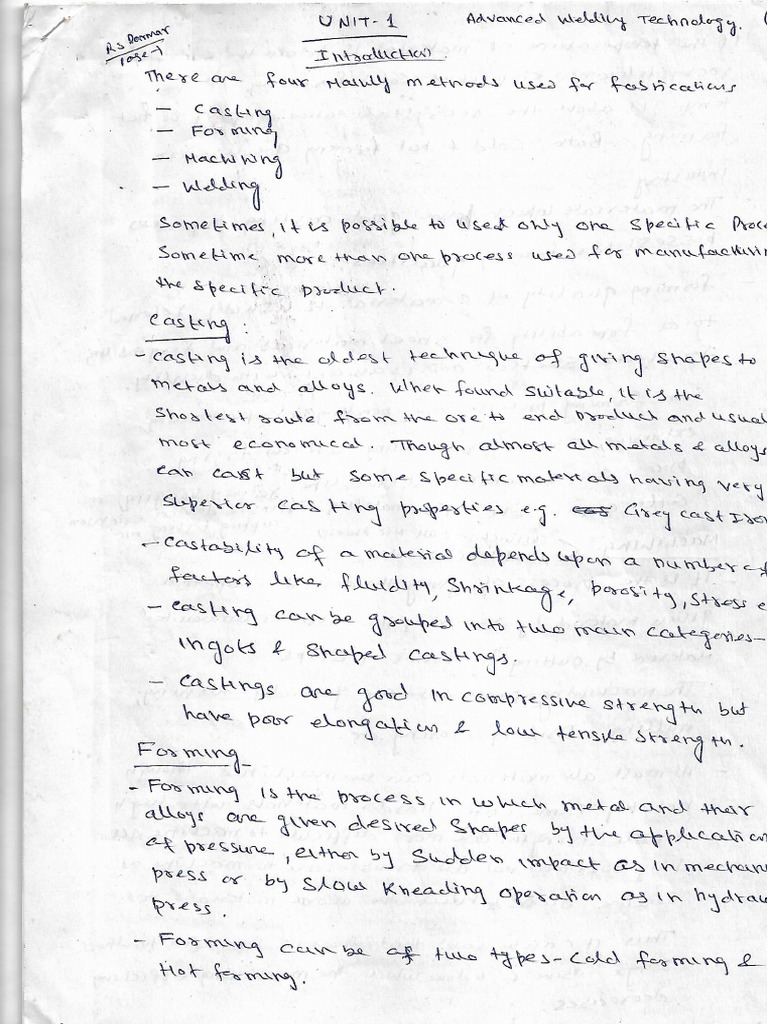 UNIT-1
Advanced Welding Technology.
RS Parmar
Page-1
Introduction
There are four Mainly methods used for fabrications
- Casting
- Forming
- Machining
- Welding
Sometimes, it is possible to used only one specific Proce
Sometime more than one process used for manufacturin
the specific product.
Casting:
- Casting is the oldest technique of giving shapes to
metals and alloys. When found suitable, it is the
Shortest route from the ore to end product and usual
most economical. Though almost all metals & alloys
can cast but some specific materials having very
superior casting properties e.g. Grey cast Iron
- Castability of a material depends upon a number of
factors like fluidity, Shrinkage, porosity, stress e
- Casting can be grouped into two main categories-
ingots & shaped castings.
- Castings are good in compressive strength but
have poor elongation & low tensile strength.
Forming-
- Forming is the process in which metal and their
alloys are given desired shapes by the application
of pressure, either by sudden impact as in mechan
press or by slow kneading operation as in hydrau
press.
- Forming can be of two types-Cold forming &
Hot forming.